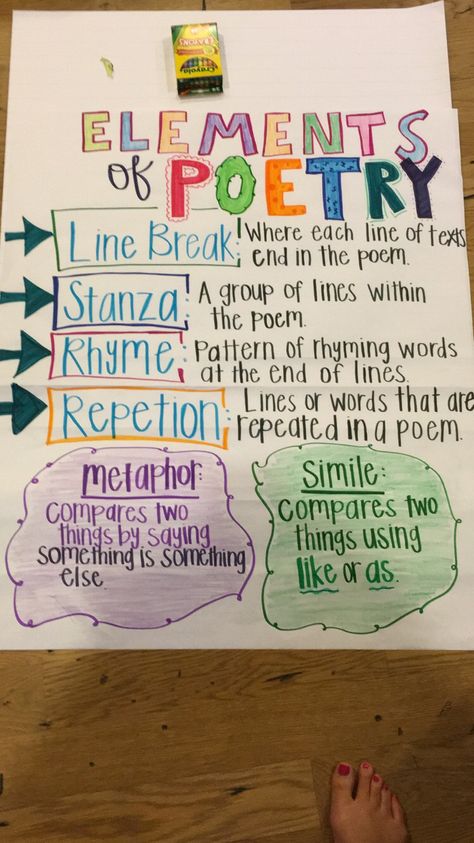 CRAYONS
Crayola
ELEMENTS
of POETRY
Line Break: Where each line of texts
end in the poem.
Stanza: A group of lines within
the poem.
Rhyme: Pattern of rhyming words
at the end of lines.
Repetion: Lines or words that are
repeated in a poem.
metaphor:
compares two
things by saying
something is something
else.
Simile:
compares two
things using
like or as.